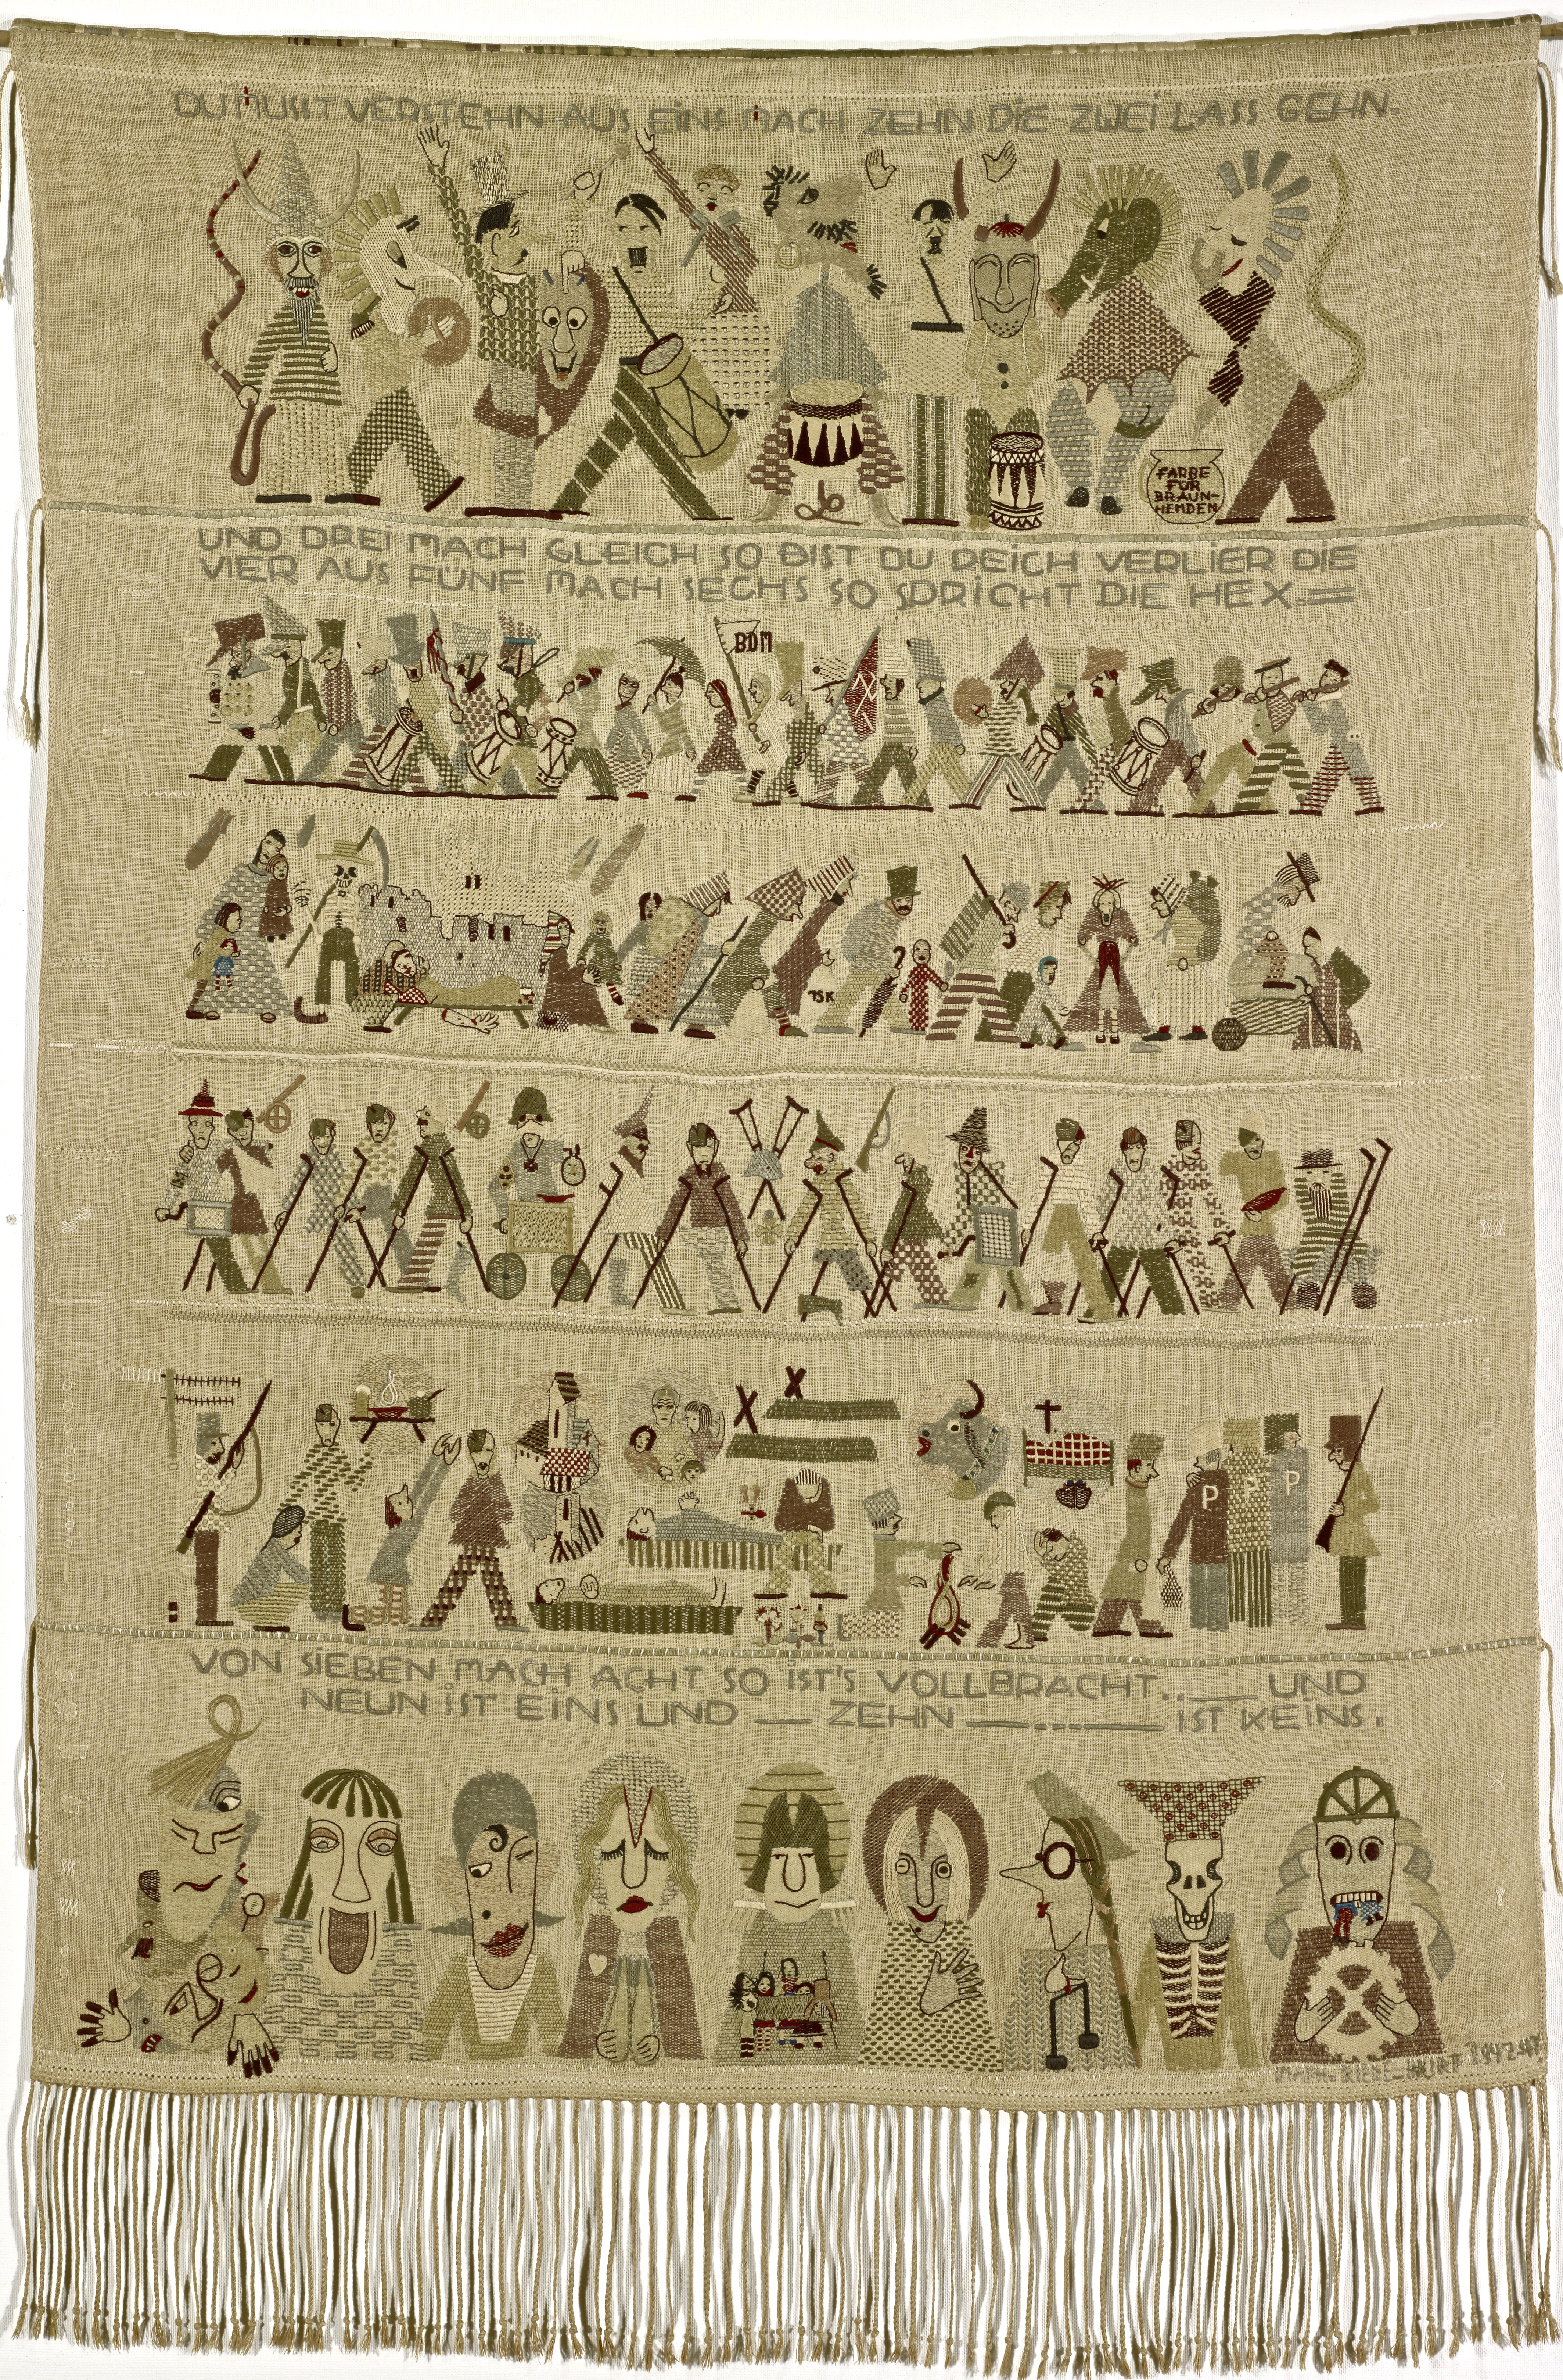 DU MUSST VERSTEHN AUS EINS MACH ZEHN DIE ZWEI LASS GEHN.
FARBE
FÜR
BRAUN-
HEMDEN
UND DREI MACH GLEICH SO BIST DU REICH VERLIER DIE
VIER AUS FÜNF MACH SECHS SO SPRICHT DIE HEX.=
BDM
P P P
VON SIEBEN MACH ACHT SO IST'S VOLLBRACHT..__ UND
NEUN IST EINS UND — ZEHN —---— IST KEINS.